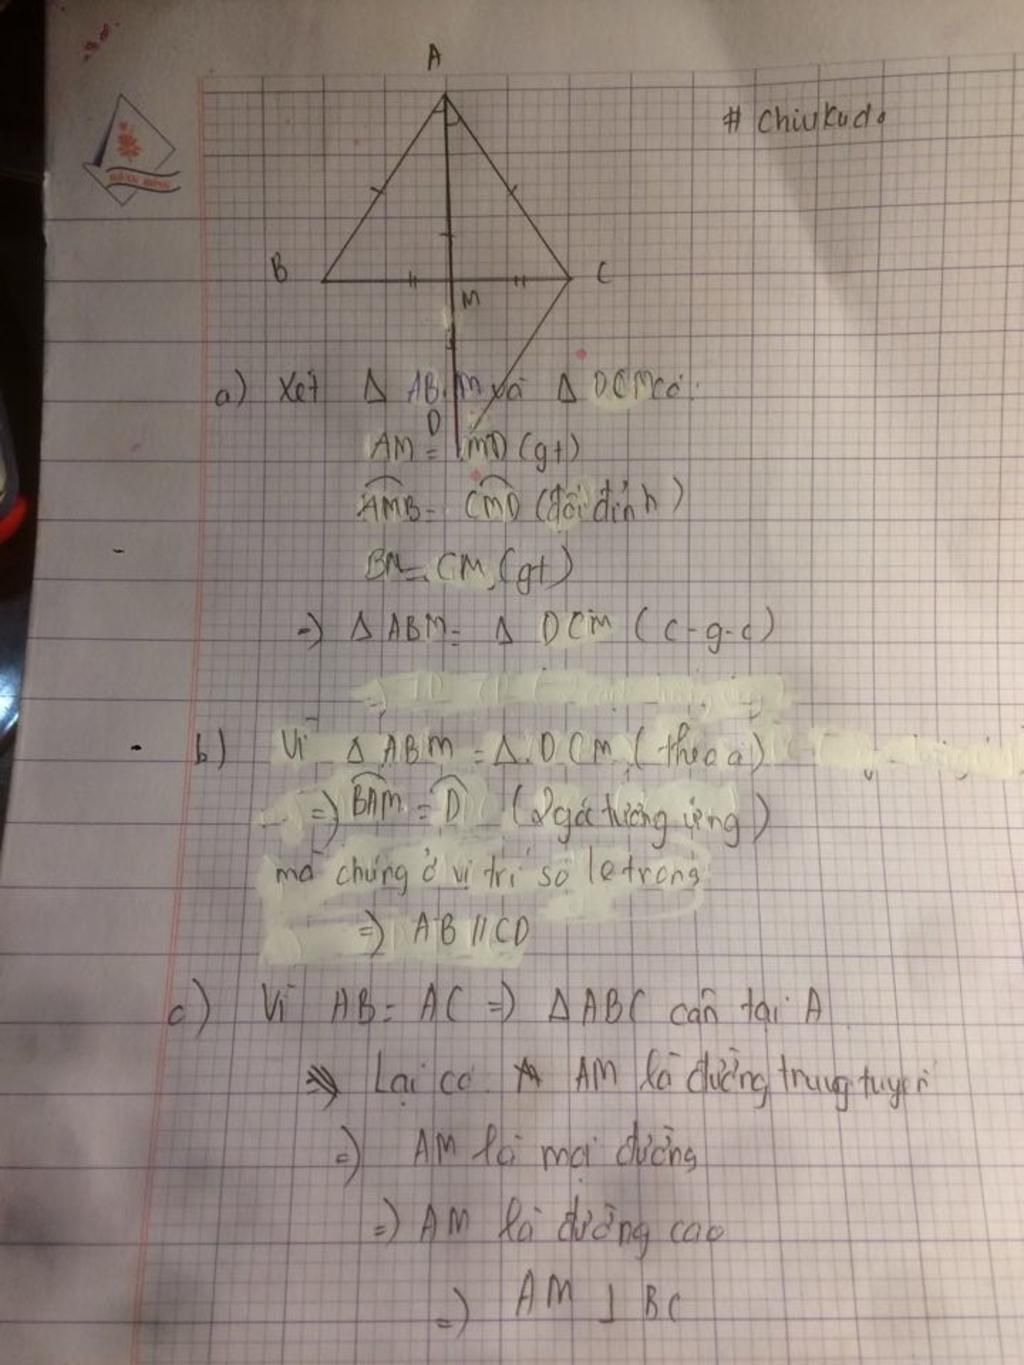 A
# Chiukudo
B
C
M
a) Xét Δ ABM và Δ DCM có:
D
AM = MD (gt)
AMB = CMD (đối đỉnh)
BM = CM (gt)
=) Δ ABM = Δ DCM (c-g-c)
b) Vì Δ ABM = Δ DCM (theo a)
=) BAM = D (2 góc tương ứng)
mà chúng ở vị trí so le trong
=) AB // CD
c) Vì AB = AC =) Δ ABC cân tại A
Lại có AM là đường trung tuyến
=) AM là mọi đường
=) AM là đường cao
=) AM ⊥ BC